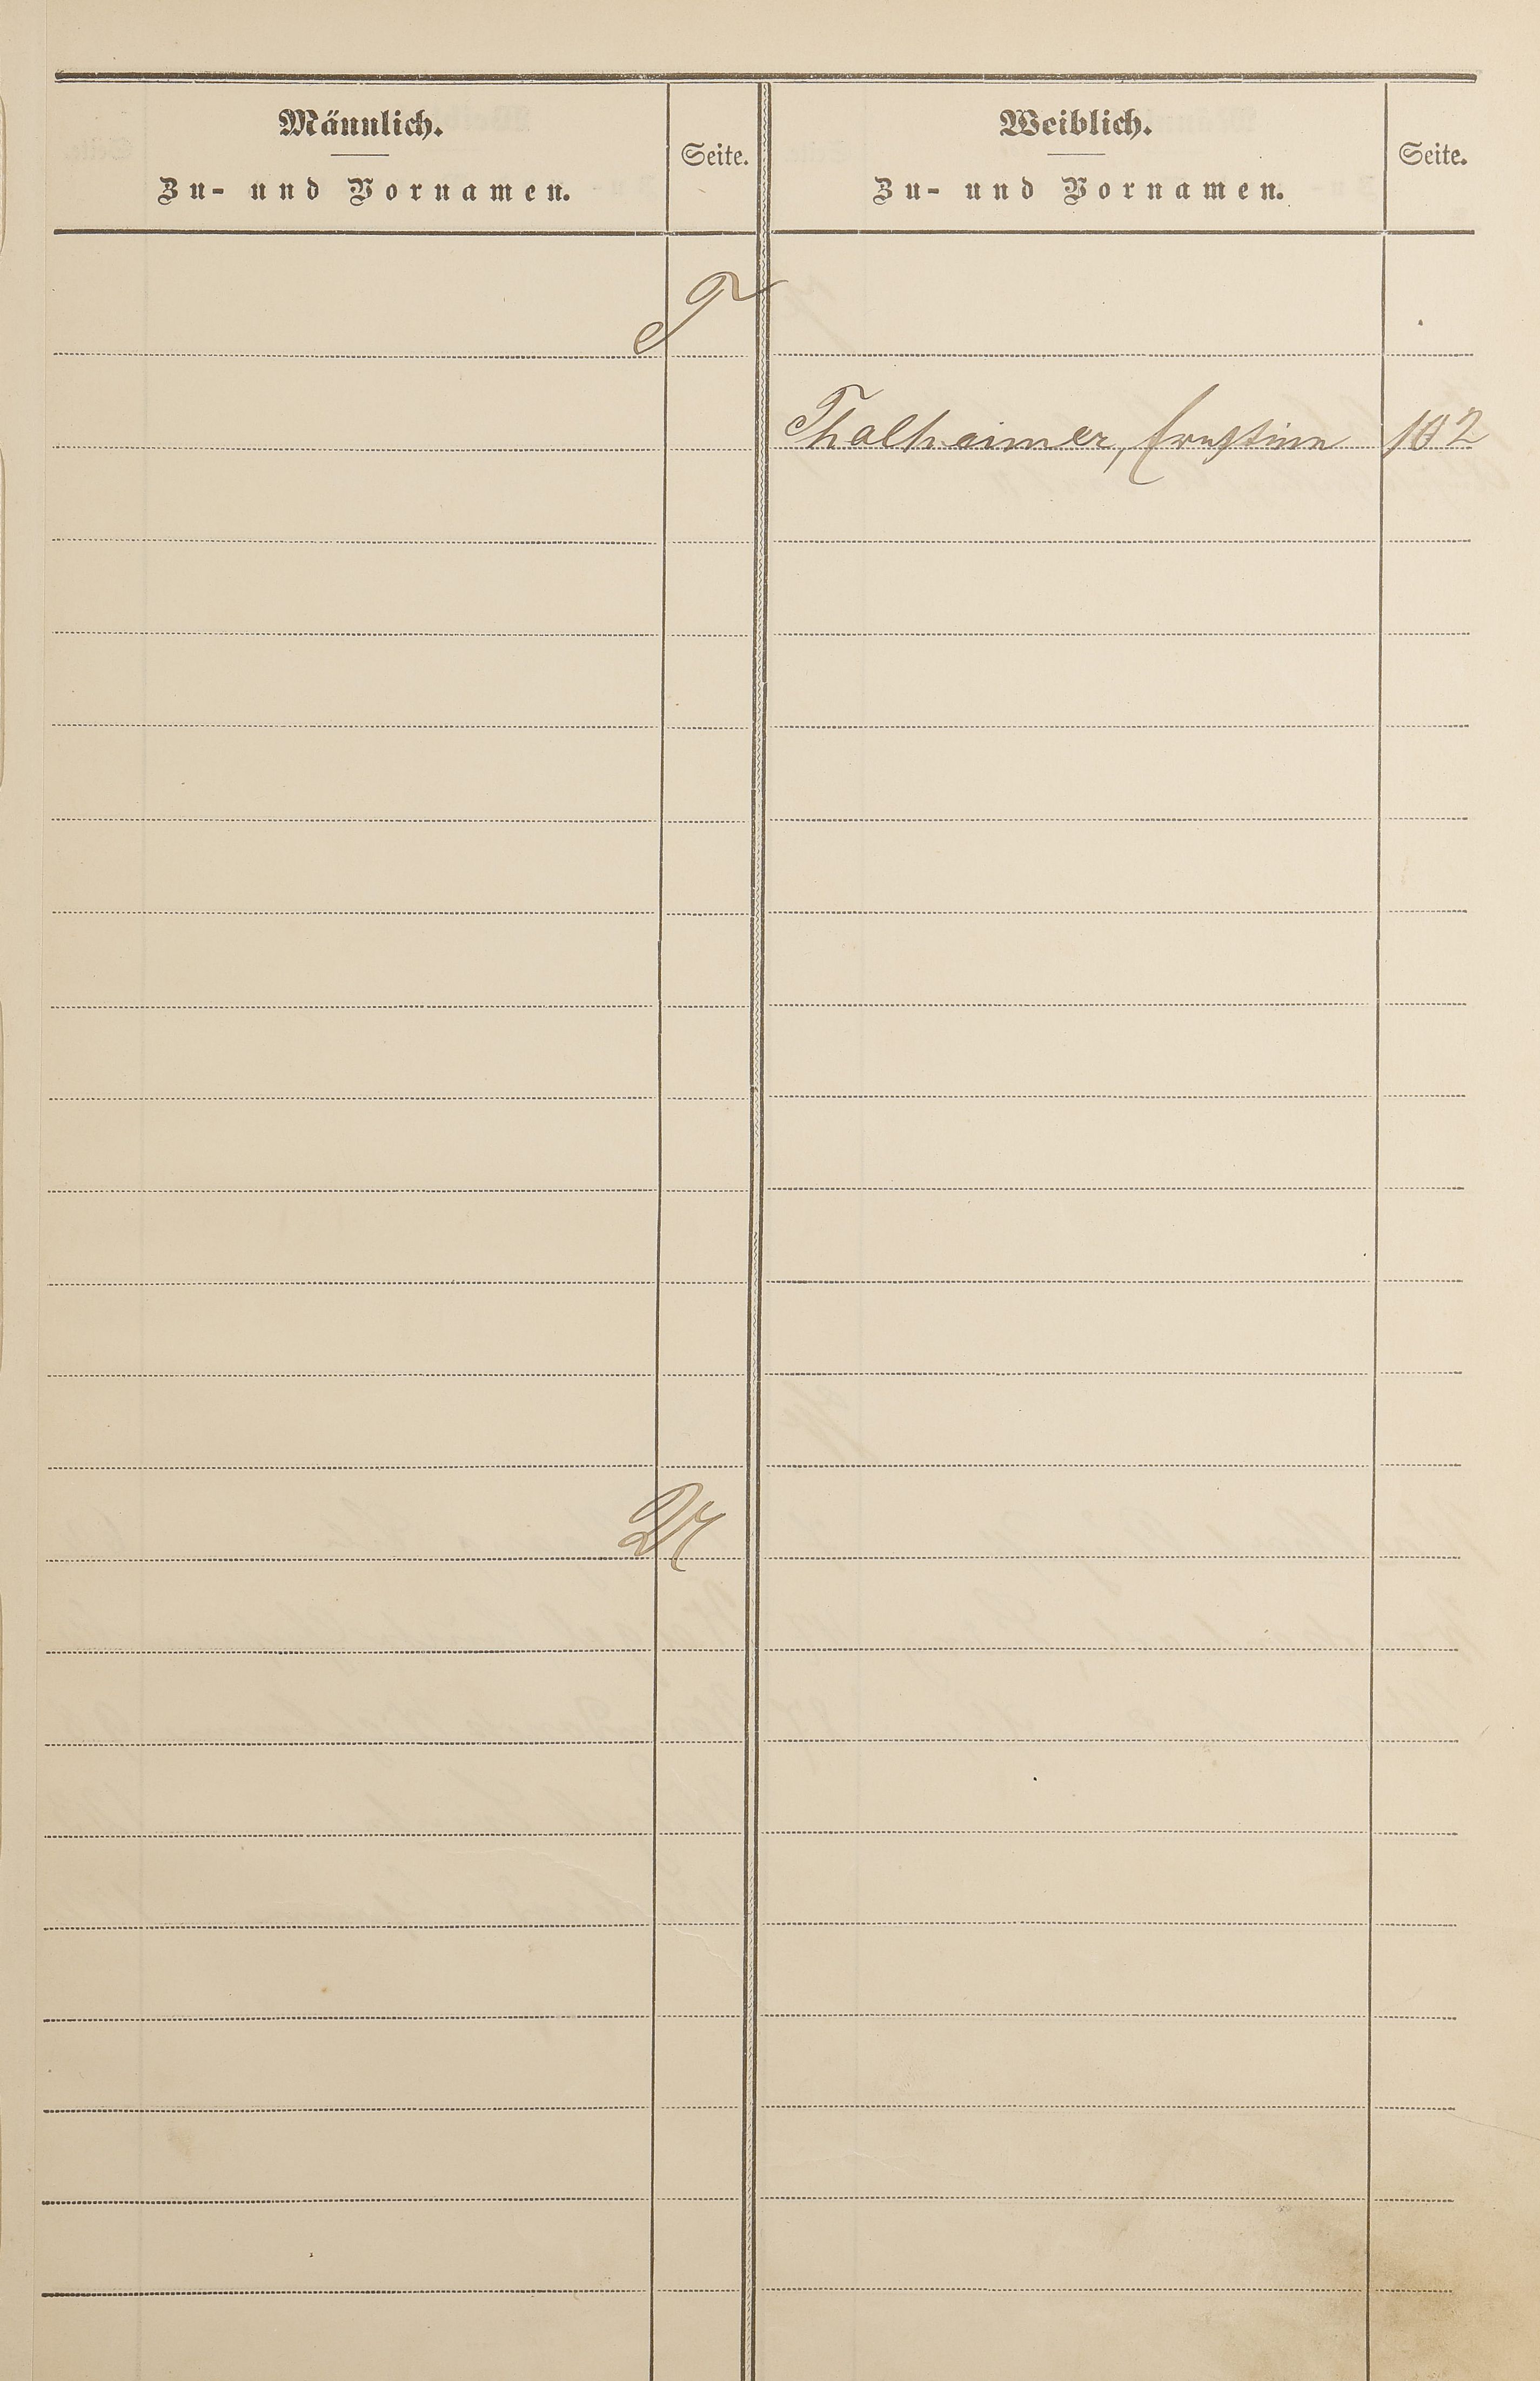 Männlich.
Zu- und Vornamen.
Seite.
Weiblich.
Zu- und Vornamen.
Seite.
T
Thalheimer, Ernstine 102
U